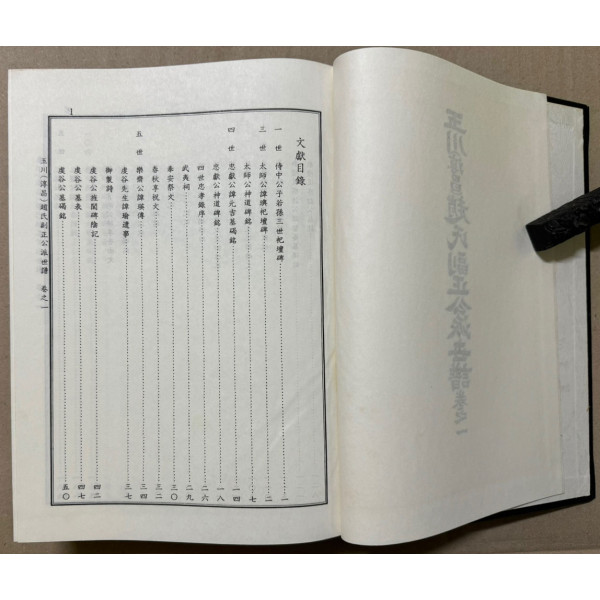 文獻目錄
一世 侍中公子若孫三世祀壇碑 一
三世 太師公諱璵祀壇碑 二
太師公神道碑銘 七
四世 忠獻公諱元吉墓碣銘 一四
忠獻公神道碑銘 一八
四世忠孝錄序 二六
武夷祠 二九
奉安祭文 三〇
春秋享祝文 三二
五世 樂齋公諱瑛傳 三四
虔谷先生諱瑜遺事 三七
御製詩
虔谷公旌閭碑陰記 四二
虔谷公墓表 四七
虔谷公墓碣銘 五〇
玉川(淳昌)趙氏副正公派世譜 卷之一
玉川淳昌趙氏副正公派世譜 卷之一